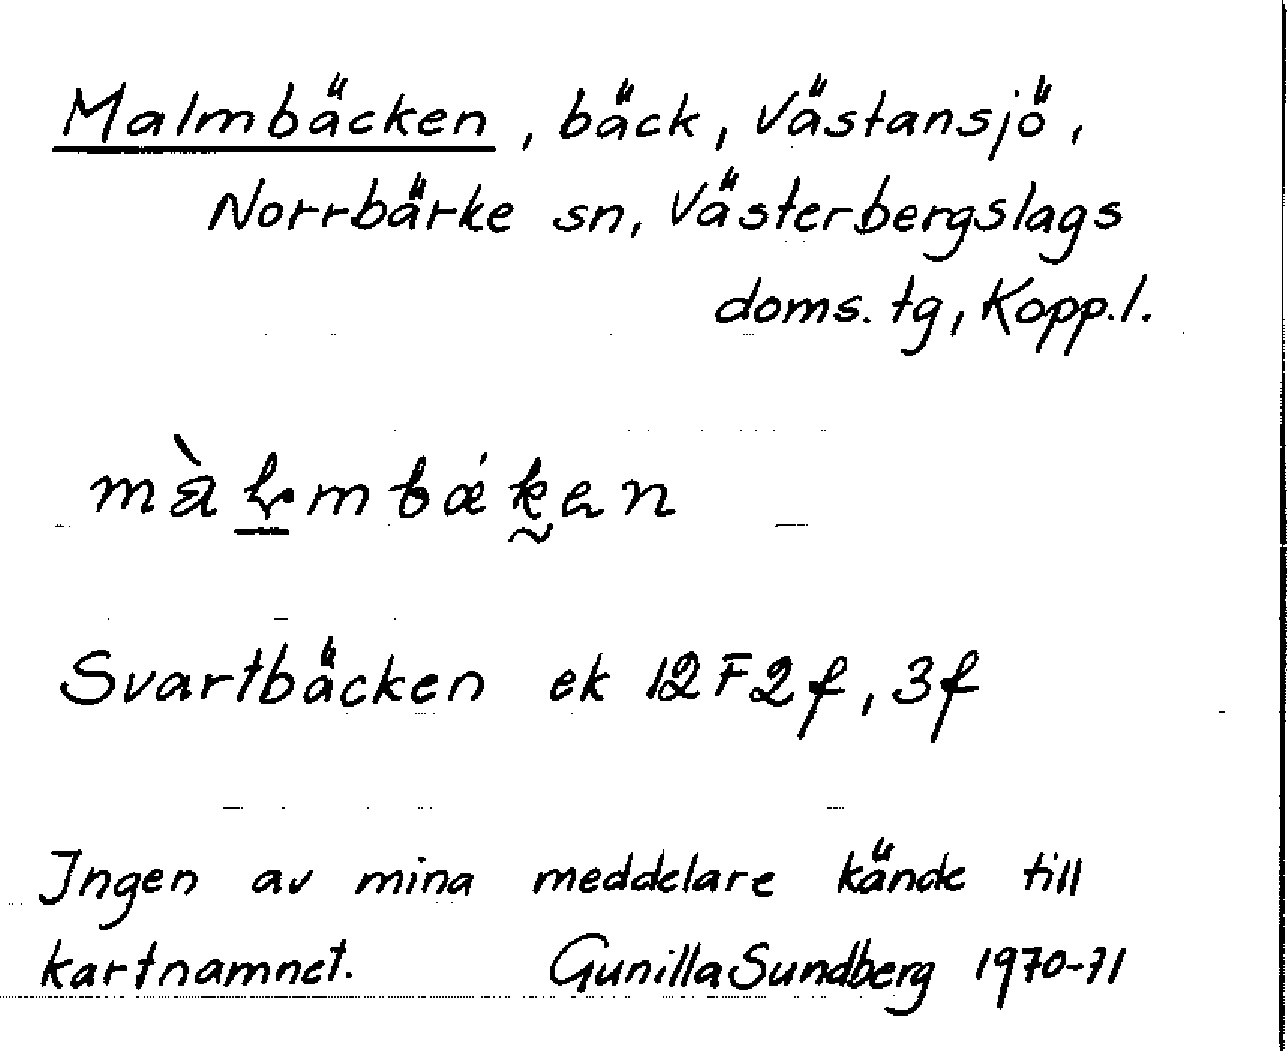 Malmbäcken, bäck, Västansjö,
Norrbärke sn, Västerbergslags
doms. tg, Kopp.l.
Svartbäcken ek 12F2f, 3f
Ingen av mina meddelare kände till
kartnamnet. Gunilla Sundberg 1970-71